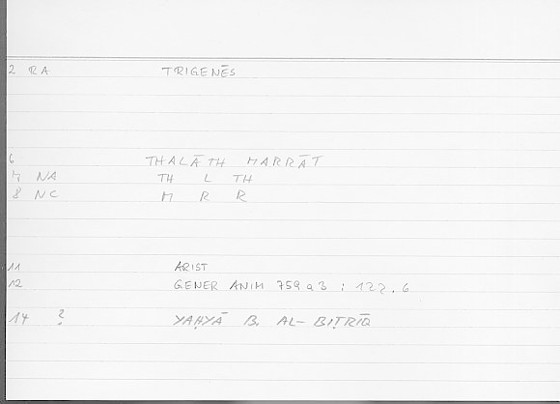 2 RA TRIGENĒS
6 THALĀTH MARRĀT
7 NA TH L TH
8 NC M R R
11 ARIST
12 GENER ANIM 759a3 : 122,6
14 ? YAḤYĀ B. AL-BIṬRĪQ